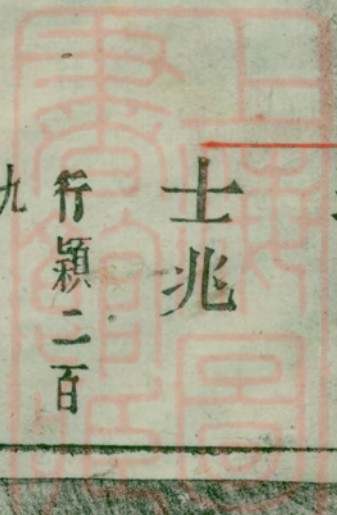 士兆
行頴二百
九